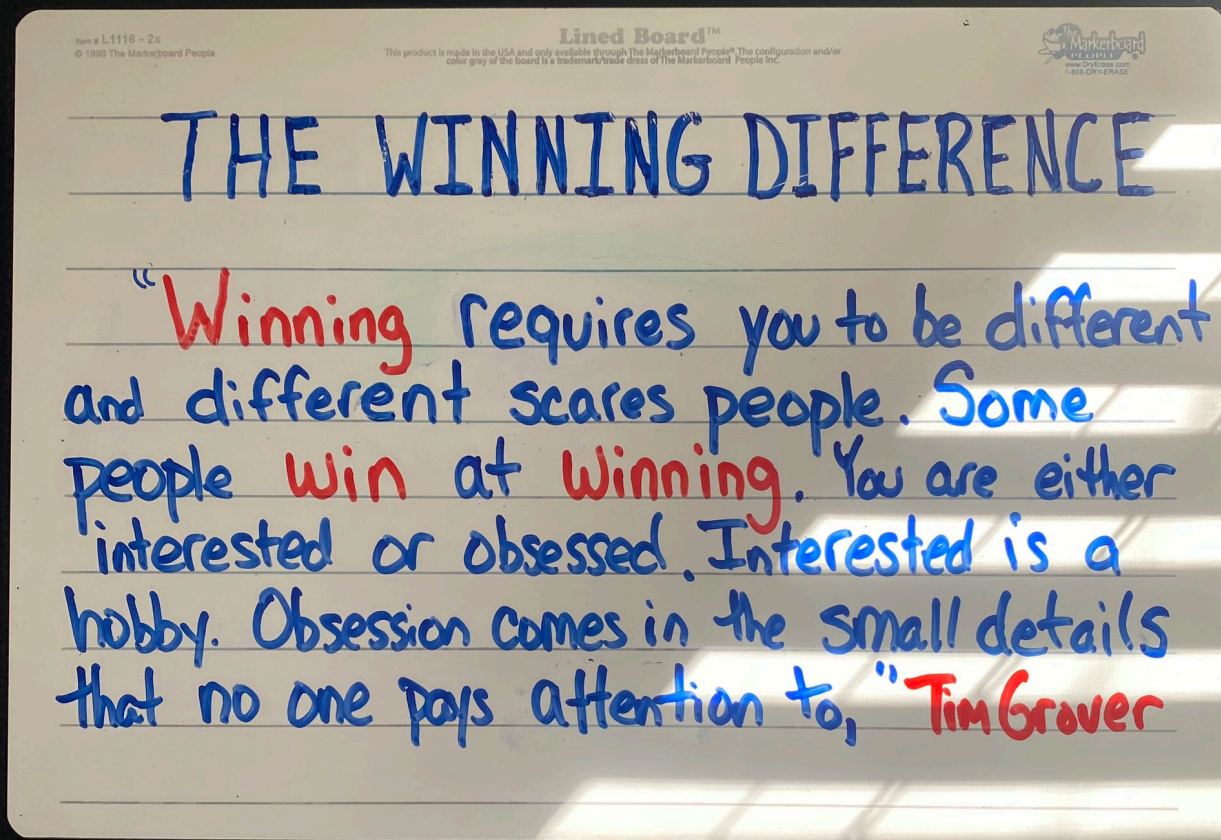 Item # L1116 - 2x
© 1996 The Markerboard People
Lined Board™
This product is made in the USA and only available through The Markerboard People®. The configuration and/or
color gray of the board is a trademark/trade dress of The Markerboard People Inc.
The
Markerboard
PEOPLE
www.DryErase.com
1-800-DRY-ERASE
THE WINNING DIFFERENCE
"Winning requires you to be different
and different scares people. Some
people win at winning. You are either
interested or obsessed. Interested is a
hobby. Obsession comes in the small details
that no one pays attention to," Tim Grover